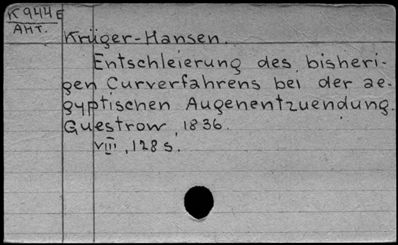 K944E
AHT.
Krüger-Hansen.
Entschleierung des bisheri-
gen Curverfahrens bei der ae-
gyptischen Augenentzuendung.
Guestrow, 1836.
VIII, 128 s.